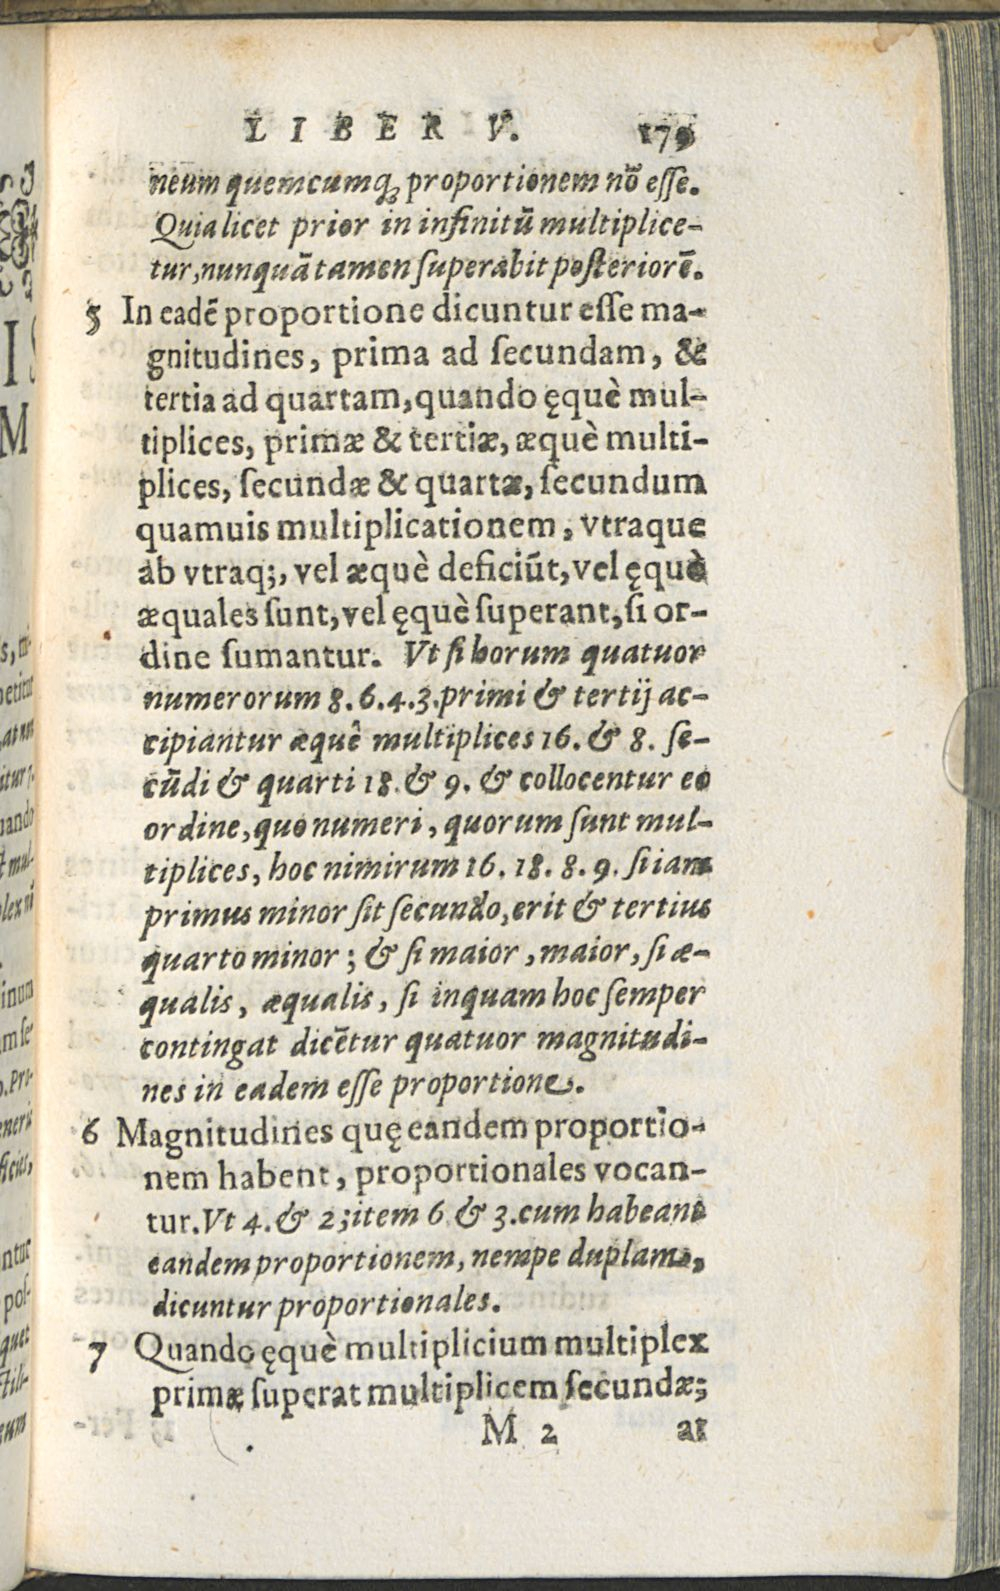 LIBER V. 179
neum quemcumq; proportionem nõ esse.
Quia licet prior in infinitũ multiplice-
tur, nunquã tamen superabit posteriorẽ.
5 In eadẽ proportione dicuntur esse ma-
gnitudines, prima ad secundam, &
tertia ad quartam, quando ęquè mul-
tiplices, primæ & tertiæ, æquè multi-
plices, secundæ & quartæ, secundum
quamuis multiplicationem, vtraque
ab vtraq;, vel æquè deficiũt, vel ęquè
æquales sunt, vel ęquè superant, si or-
dine sumantur. Vt si horum quatuor
numerorum 8. 6. 4. 3. primi & tertij ac-
cipiantur æquê multiplices 16. & 8. se-
cũdi & quarti 18. & 9. & collocentur eo
ordine, quo numeri, quorum sunt mul-
tiplices, hoc nimirum 16. 18. 8. 9. si iam
primus minor sit secundo, erit & tertius
quarto minor; & si maior, maior, si æ-
qualis, æqualis, si inquam hoc semper
contingat dicẽtur quatuor magnitudi-
nes in eadem esse proportione.
6 Magnitudines quę eandem proportio-
nem habent, proportionales vocan-
tur. Vt 4. & 2; item 6 & 3. cum habeant
eandem proportionem, nempe duplam,
dicuntur proportionales.
7 Quando ęquè multiplicium multiplex
primæ superat multiplicem secundæ;
M 2 at